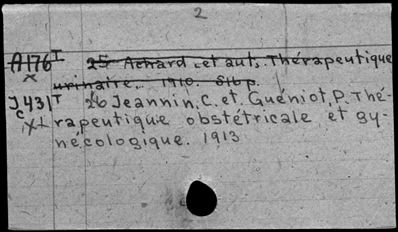 2
A176 I 25 Achard et aut. Thérapeutique
x urinaire. 1910. 816 p.
J431 T 26 Jeannin, C. et Guéniot, P. Thé-
c x1 rapeutique obstétricale et gy-
nécologique. 1913